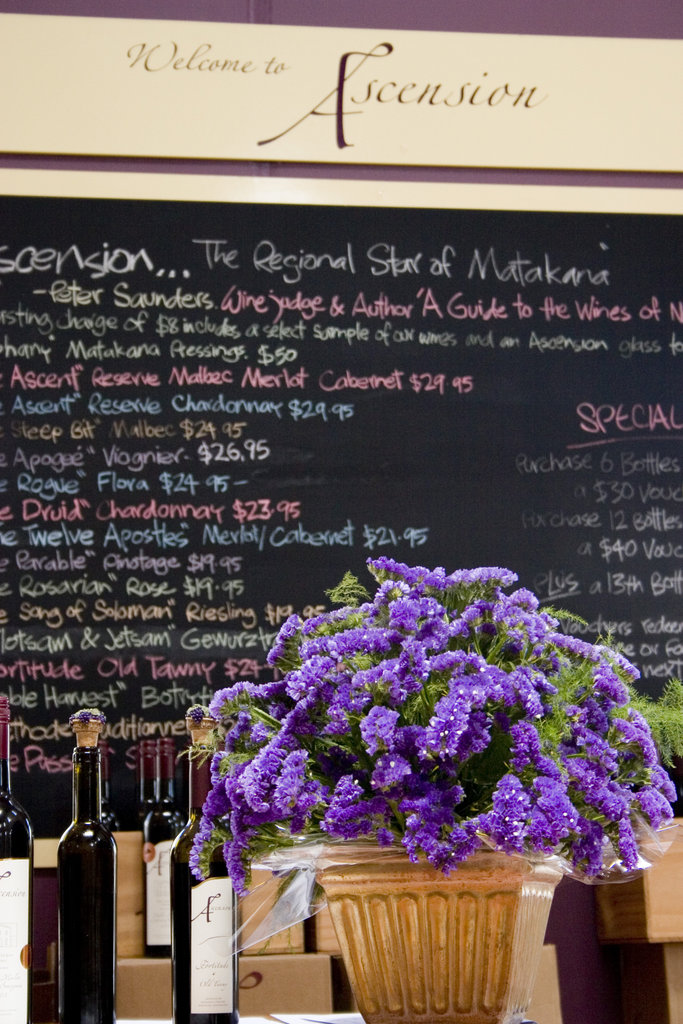 Welcome to Ascension
scension... The Regional Star of Matakana"
-Peter Saunders. Wine judge & Author 'A Guide to the Wines of N
asting charge of $8 includes a select sample of our wines and an Ascension glass to
phany" Matakana Pressings. $50
e Ascent" Reserve Malbec Merlot Cabernet $29.95
e Ascent" Reserve Chardonnay $29.95
e Steep Bit" Malbec $24.95
e Apogee" Viognier. $26.95
e Rogue" Flora $24.95-
e Druid" Chardonnay $23.95
he Twelve Apostles" Merlot/Cabernet $21.95
e Parable" Pinotage $19.95
e Rosarian" Rosé $19.95
e Song of Soloman" Riesling $19.95
lotsam & Jetsam" Gewurztr
ortitude Old Tawny $24
ble Harvest" Botryt
ethode raditionne
e Pass
SPECIAL
Purchase 6 Bottles
a $30 Vouc
Purchase 12 Bottles
a $40 Vouc
PLUS a 13th Bott
Vouchers redeem
e or Fo
next
Ascension
Fortitude
Old Tawny